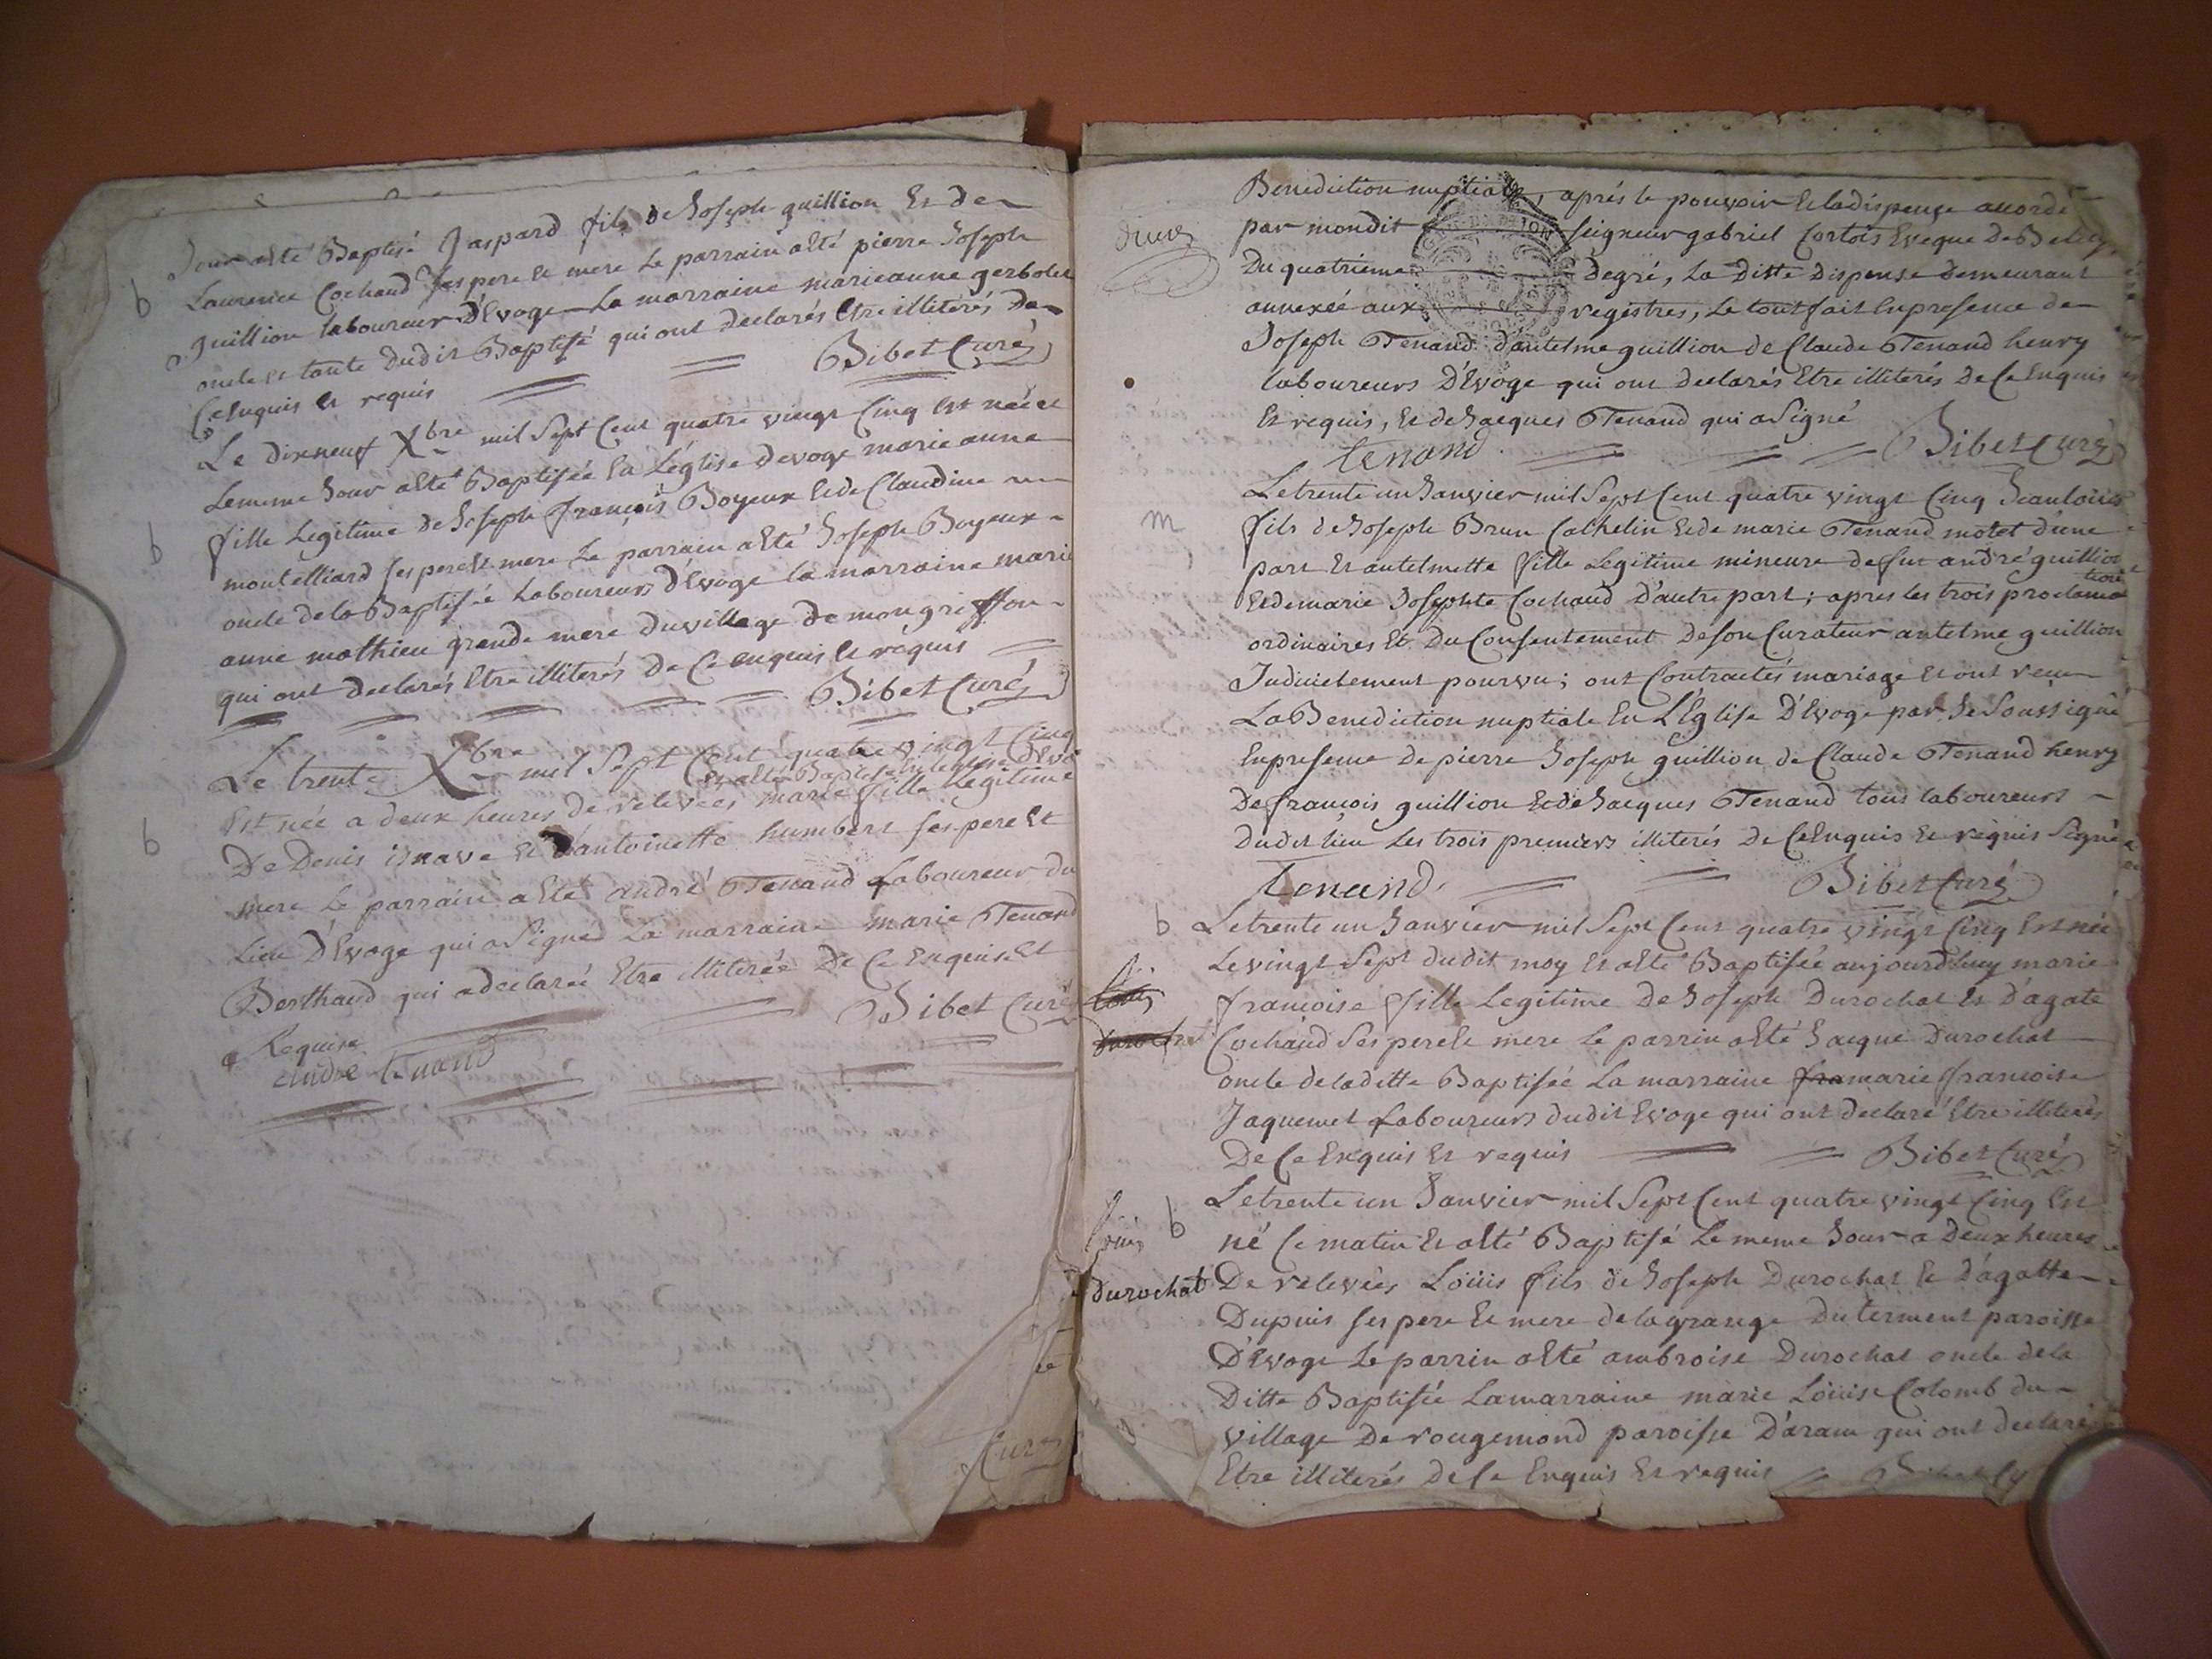 Jour a Eté Baptisé Jaspard fils de Joseph guillion Et de
b
Laurence Cochaud ses pere et mere Le parrain a Eté pierre Joseph
guillion laboureur D'Evoge La marraine marieanne gerbolet
oncle et tante dudit Baptisé qui ont declarés Etre illiterés De
Ce Enquis et requis Bibet Curé
Le dixneuf Xbre mil Sept Cent quatre vingt Cinq Est née et
Le meme Jour a Eté Baptisée En L'église d'evoge marie anne
b
fille Legitime de Joseph françois Boyeux et de Claudine
montelliard ses pere et mere Le parrain a Eté Joseph Boyeux
oncle de la Baptisée Laboureurs d'Evoge la marraine marie
anne mathieu grande mere du village de mongriffon
qui ont declarés Etre illiterés De Ce enquis et réquis
Bibet Curé
Le trente Xbre mil Sept Cent quatre vingt Cinq
et a Eté Baptisé En L'église d'Evo
Est née a deux heures de relevées marie fille Legitime
b
De Denis et d'antoinette humbert ses pere Et
mere Le parrain a Eté andré Tenand Laboureur du
Lieu D'Evoge qui a Signé La marraine marie Tenand
Berthaud qui a declaré Etre illiterée De Ce Enquise Et
Requise Bibet Curé
andre tenand
Curé
Benediction nuptiale, aprés le pouvoir Et la dispense accordé
par mondit seigneur gabriel Cortois Eveque De Beley,
Du quatrieme Degré, La Ditte Dispense demeurant
annexéé aux regéstres, Le tout fait En presence de
Joseph Tenand d'antelme guillion de Claude Tenand henry
laboureurs D'Evoge qui ont declarés Etre illiterés De Ce Enquis
Et requis, Et de Jacques Tenand qui a Signé
tenand Bibet Curé
Le trente un Janvier mil Sept Cent quatre vingt Cinq Jean loüis
m
fils de Joseph Brun Cathelin et de marie Tenand motet d'une
part Et antelmette fille Legitime mineure de fut andré guillion
tions
Et de marie Josephte Cochaud D'autre part; apres les trois proclama
ordinaires Et Du Consentement De son Curateur antelme guillion
Judicielement pourvu; ont Contractés mariage Et ont recu
La Benediction nuptiale En L'Eglise D'Evoge par Je Soussigné
En presence de pierre Joseph guillion de Claude Tenand henry
De françois guillion Et de Jacques Tenand tous laboureurs
Dudit lieu Les trois premiers illiterés De Ce Enquis et réquis Signé
Tenand Bibet Curé
b
Le trente un Janvier mil Sept Cent quatre vingt Cinq Est née
Le vingt Sept dudit moy Et a Eté Baptisée aujourd'huy marie
francoise fille Legitime De Joseph Durochat Et D'agate
Cochaud Ses pere Et mere Le parrin a Eté Jacque Durochat
oncle de laditte Baptisée La marraine fra marie francoise
Jaquemet Laboureurs dudit Evoge qui ont declaré Etre illiterés
De Ce Enquis Et requis Bibet Curé
Le trente un Janvier mil Sept Cent quatre vingt Cinq Est
b
né Ce matin Et a Eté Baptisé Le meme Jour a Deux heures
durochat
De relevées Loüis fils de Joseph Durochat Et D'agatte
Dupuis ses pere Et mere de la grange Du terment paroisse
D'Evoge Le parrin a Eté ambroise Durochat oncle de la
Ditte Baptisée La marraine marie Loüise Colomb du
village De rougemond paroisse D'aran qui ont declaré
Etre illiterés De Ce Enquis Et requis